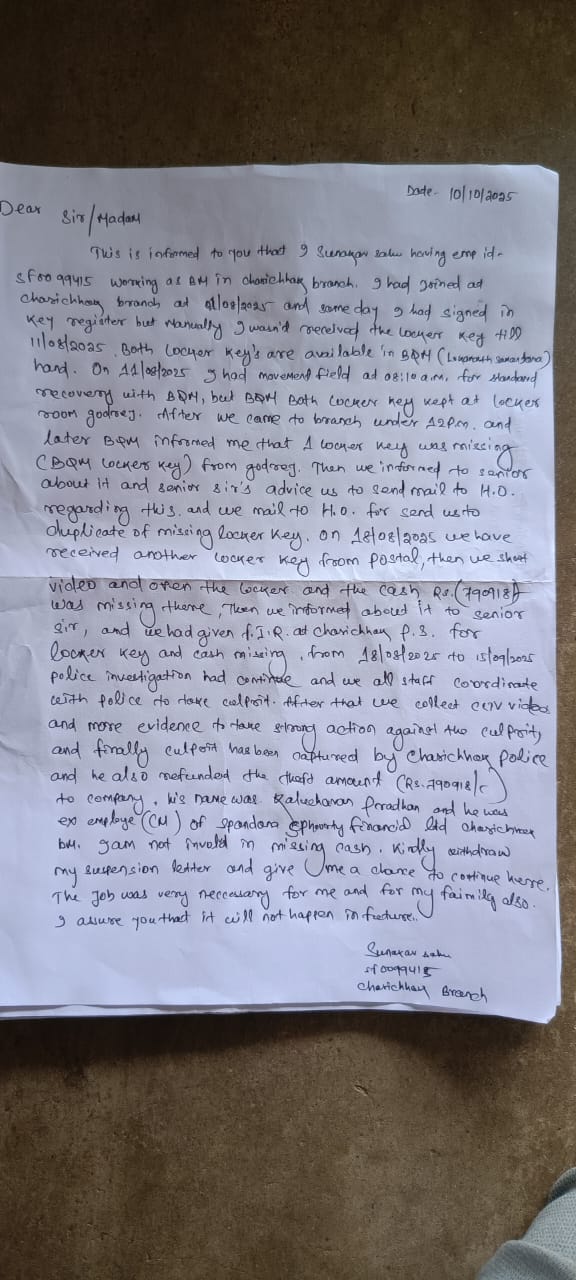 Date- 10/10/2025
Dear Sir/Madam
This is informed to you that I Sunakar sahu having emp id-
sf0099415 working as BM in charichhak branch. I had joined at
charichhak branch at 01/08/2025 and same day I had signed in
key register but Manually I wasn'd received the locker key till
11/08/2025. Both locker key's are available in BQM (
hand. On 11/08/2025 I had movement field at 08:10 a.m. for standard
recovery with BQM, but BQM Both locker key kept at locker
room godrej. After we came to branch under 12P.m. and
later BQM infromed me that 1 locker key was missing
(BQM locker key) from godrej. Then we informed to senior
about it and senior sir's advice us to send mail to H.O.
regarding this. and we mail to H.O. for send us to
duplicate of missing locker key. on 18/08/2025 we have
received another locker key from postal, then we shoot
video and open the locker and the cash Rs.(790918/-)
was missing there, Then we informed about it to senior
sir, and we had given f.I.R. at charichhak P.S. for
locker key and cash missing. from 18/08/2025 to 15/09/2025
police investigation had continue and we all staff coordinate
with police to take culprit. After that we collect cctv video
and more evidence to take strong action against the culprit,
and finally culprit has been captured by charichhak police
and he also refunded the theft amount (Rs. 790918/-)
to company. his name was Kaluchanan Peradhan and he was
ex employe (CM) of spandana sphoorty financial ltd charichhak
bm. I am not invold in missing cash. Kindly withdraw
my suspension letter and give me a chance to continue here.
The job was very neccessary for me and for my faimily also.
I assure you that it will not happen in future..
Sunakar sahu
sf0099415
charichhak Branch